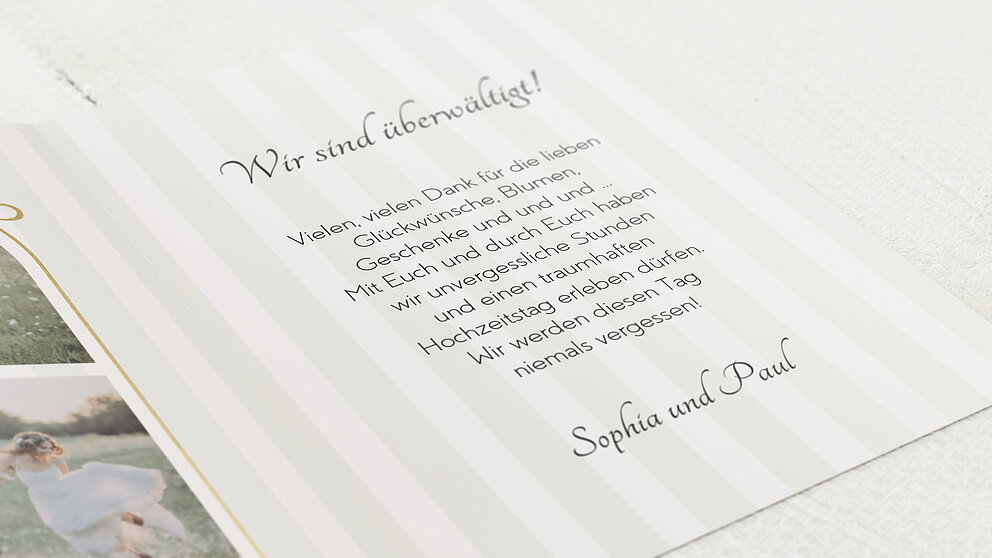 Wir sind überwältigt!
Vielen, vielen Dank für die lieben
Glückwünsche, Blumen,
Geschenke und und und ...
Mit Euch und durch Euch haben
wir unvergessliche Stunden
und einen traumhaften
Hochzeitstag erleben dürfen.
Wir werden diesen Tag
niemals vergessen!
Sophia und Paul